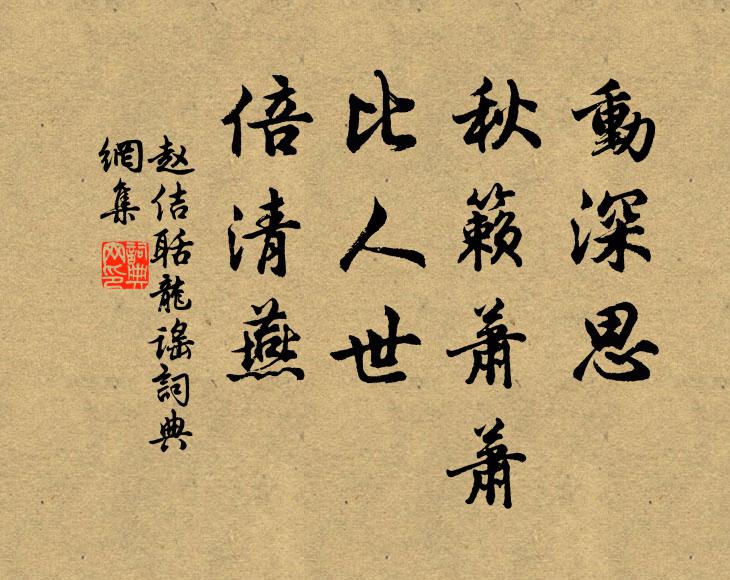 動深思
秋籟蕭蕭
比人世
倍清燕
赵佶聒龍謠詞典
網集
詞典
网印